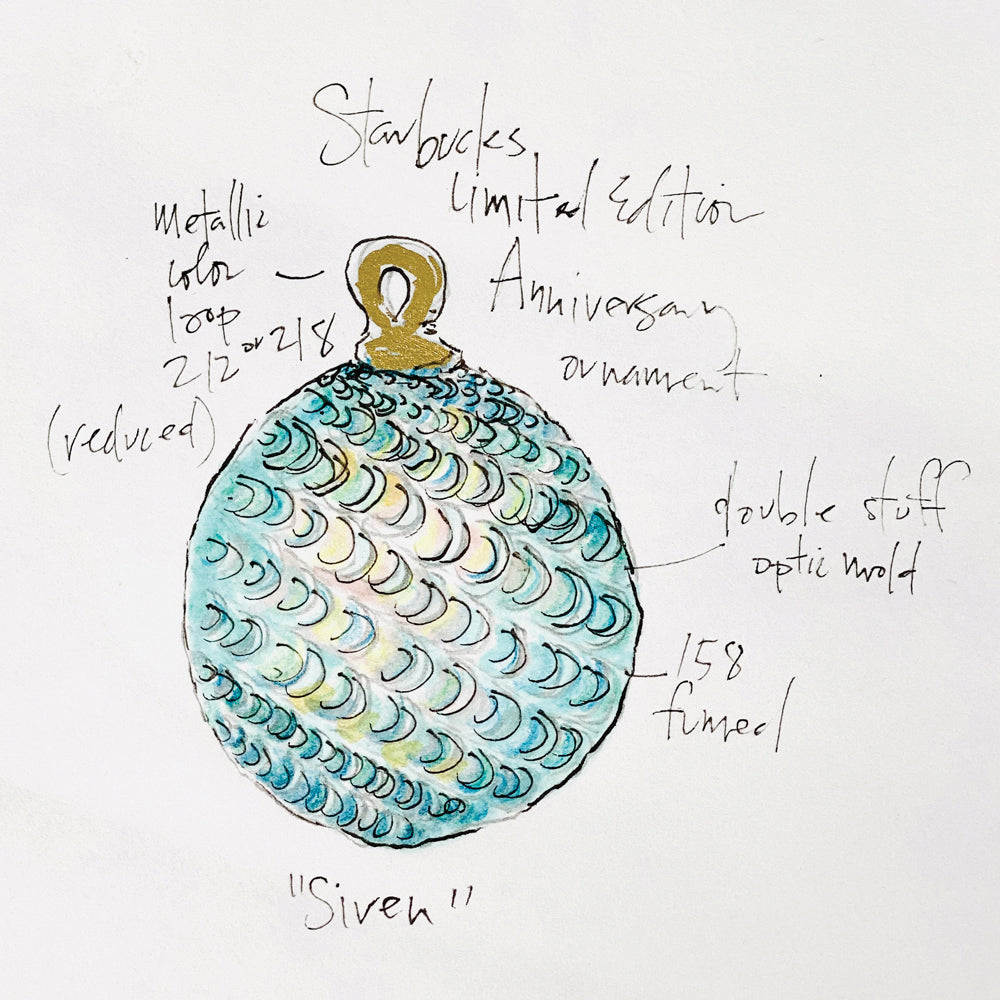 Starbucks
Limited Edition
Anniversary
ornament
Metallic
color
loop
212 or 218
(reduced)
double stuff
optic mold
158
fumed
"Siren"